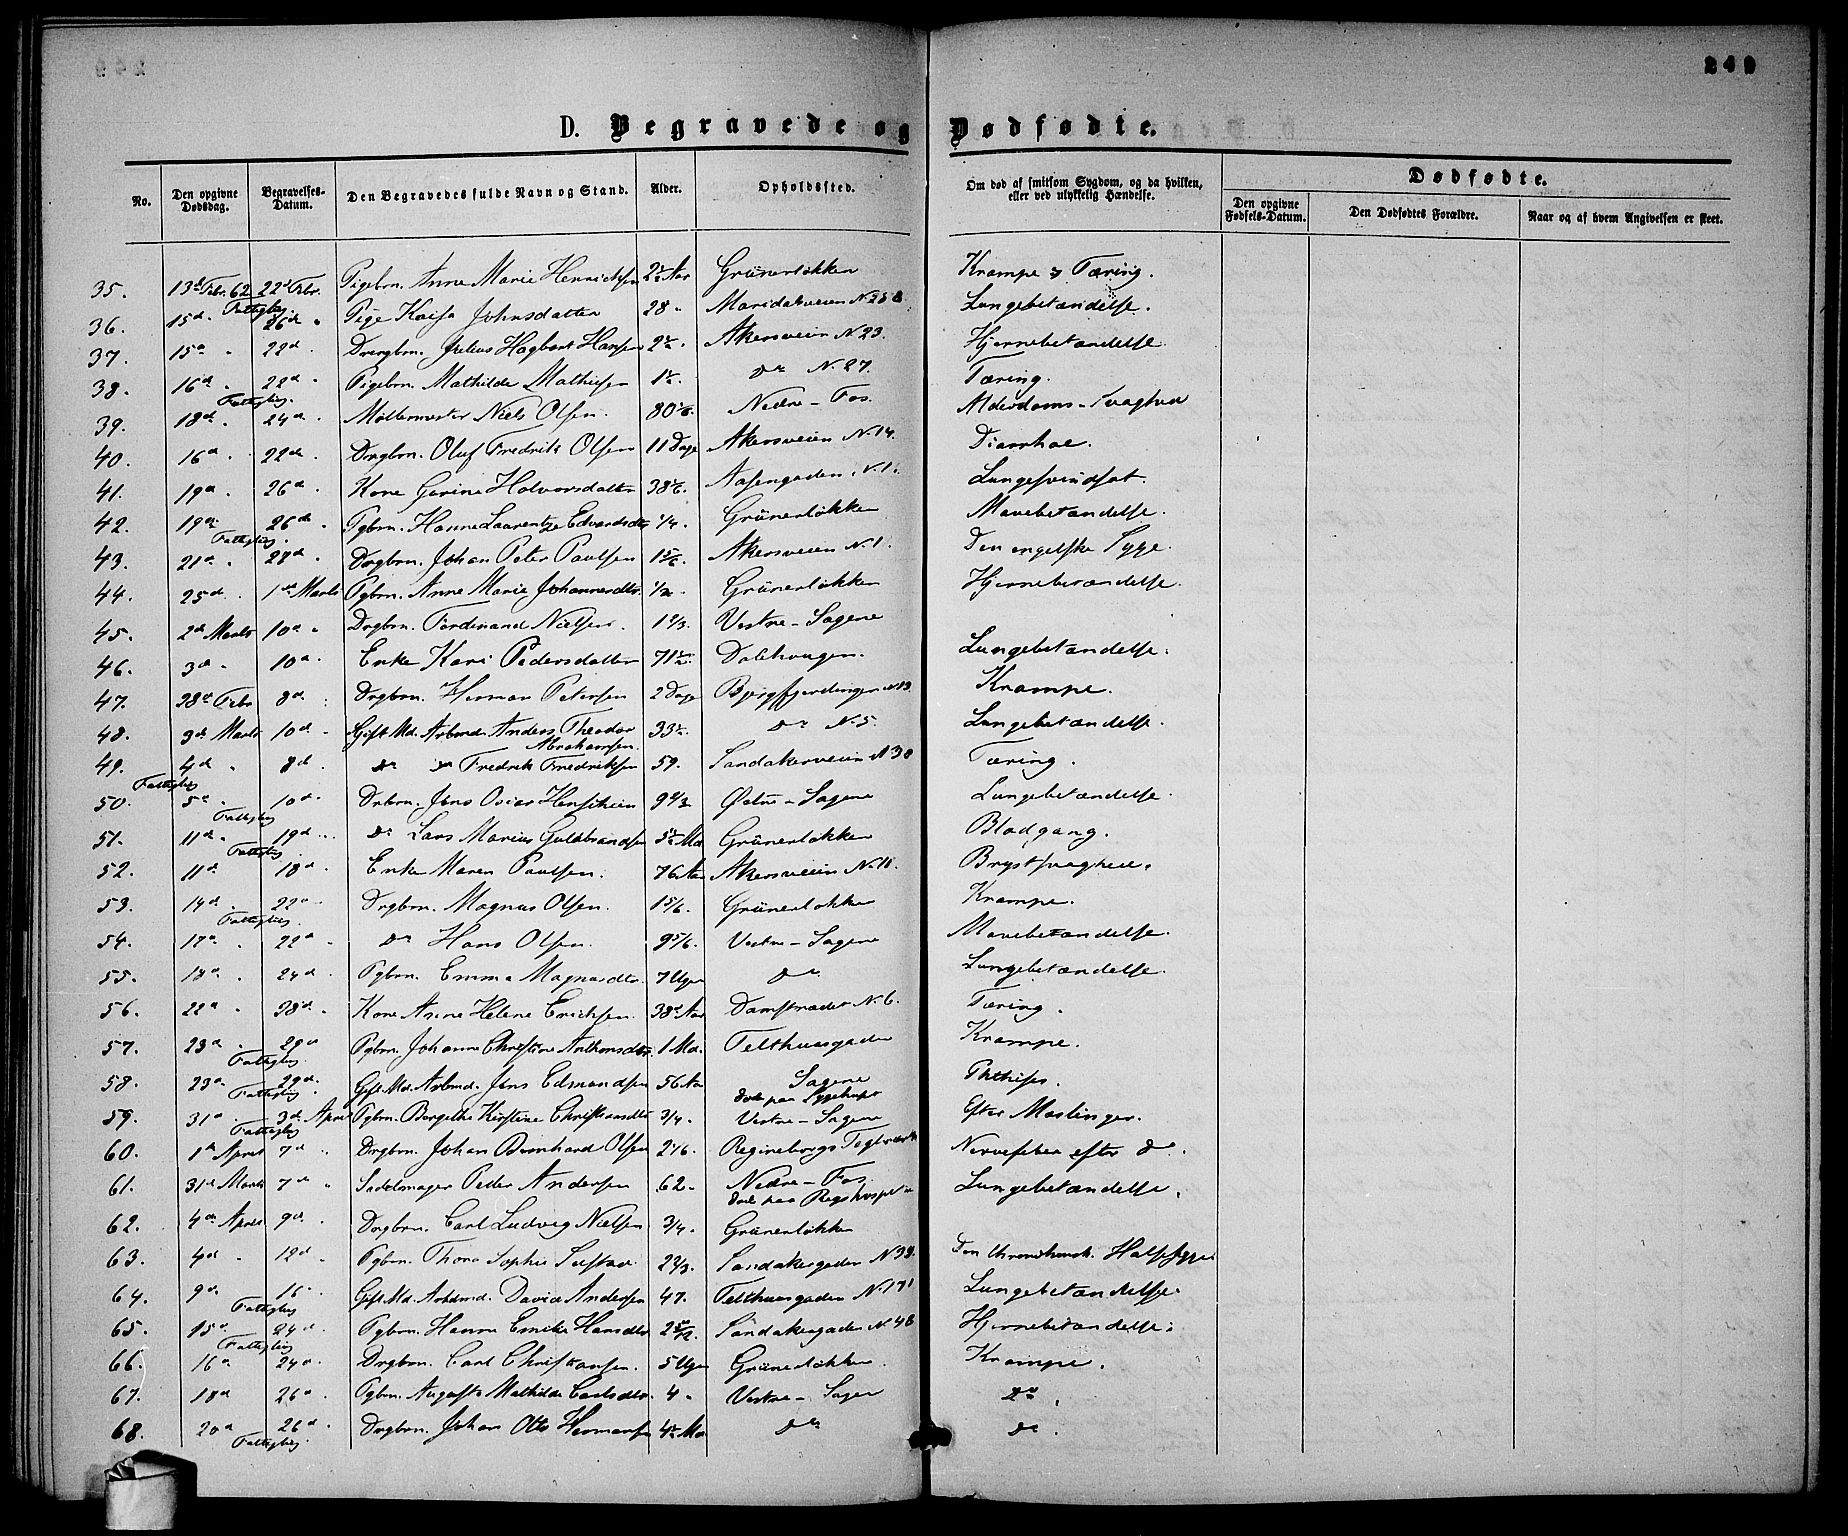 249
D. Begravede og Dødfødte.
No. | Den opgivne Dødsdag. | Begravelses-Datum. | Den Begravedes fulde Navn og Stand. | Alder. | Opholdssted. | Om død af smitsom Sygdom, og da hvilken, eller ved ulykkelig Hændelse. | Dødfødte.
Den opgivne Fødsels-Datum. | Den Dødfødtes Forældre. | Naar og af hvem Angivelsen er skeet.
35. 13de Febr. 62 22de Febr. Pigebrn. Anne Marie Henrichsen 2½ Aar Grünerløkken Krampe og Tæring.
Fattigbg.
36. 15de 26de Pige Kaisa Johnsdatter 28 Maridalsveien N. Lungebetændelse.
37. 15de 22de Drengbrn. Julius Hagbart Hansen 2½ Akersveien N. 23. Hjernebetændelse.
38. 16de 22de Pigebrn. Mathilde Mathisen 1½ do N. 27. Tæring.
Fattigbg.
39. 18de 24de Møllermester Niels Olsen. Nedre-Fos. Alderdoms-Svaghed
40. 16de 22de Drgbrn. Oluf Fredrik Olsen 11 Dage Akersveien N. 14. Diarrhoe.
41. 19de 26de Kone Garine Halvorsdatter Aasengaden N. 1. Lungesvindsot.
42. 19de 26de Pgbrn. Hanne Laurentze Edvardsdtr ¼ Grünerløkken Mavebetændelse.
Fattigbg.
43. 21de 28de Drgbrn. Johan Peter Paulsen 1 5/6. Akersveien N. 1. Den engelske Syge.
44. 25de 1ste Marts Pgbrn. Anne Marie Johannesdtr. ½ Grünerløkken Hjernebetændelse.
45. 2de Marts 10de Drgbrn. Ferdinand Nielsen. 1 2/3. Vestre-Sagene
46. 3de 10de Enke Kari Pedersdatter 71½ Dælehaugen. Lungebetændelse.
47. 28de Febr 8de Drgbrn. Herman Petersen 2 Dage Bjergfjerdingen N. 13. Krampe.
48. 3de Marts 10de Gift Md. Arbmd. Anders Theodor Abrahamsen. 33½ do N. 5. Lungebetændelse.
49. 4de 8de do do Fredrik Fredriksen 59. Sandakerveien N 38 Tæring.
Fattigbg
50. 5te 10de Drbrn. Jens Oscar 9 2/3 Østre-Sagene Lungebetændelse.
Fattigbg.
51. 11de 19de do Lars Marius Guldbrandsen 5½ Md Grünerløkken Blodgang.
Fattigbg.
52. 11de 18de Enke Maren Paulsen. 76 Aar Akersveien N. 11. Brystsvaghed.
53. 14de 22de Drgbrn. Magnus Olsen. 1 5/6. Grünerløkken Krampe.
Fattigbg.
54. 17de 22de do Hans Olsen. 9 5/6. Vestre-Sagene Mavebetændelse.
55. 18de 24de Pgbrn. Emma Magnusdtr. 7 Uger do Lungebetændelse.
56. 22de 28de Kone Anne Helene Erichsen. Aar Damstrædet N. 6. Tæring.
57. 23de 29de Pgbrn. Johanne Christine Anthonsdtr. 1 Md. Telthusgaden Krampe.
Fattigbg
58. 23de 29de. Gift Md. Arbmd. Jens Edmandsen 56 Aar Sagene død paa Sygehuset Phthisis.
Fattigbg.
59. 31te 3de April Pgbrn. Bergethe Kirstine Christiansdtr ¾. Vestre-Sagene Efter Mæslinger.
Fattigbg
60. 1ste April 7de Drgbrn. Johan Bernhard Olsen 2 1/6. Regineborgs Teglværk Nervefeber efter do.
61. 31te Marts 7de Sadelmager Peder Andersen 62. Nedre-Fos. død paa Rigshospit. Lungebetændelse.
62. 4de April 9de Drgbrn. Carl Ludvig Nielsen ¾. Grünerløkken
63. 4de 12de Pgbrn. Thora Sophie 2 2/3. Sandakergaden N 38. Den Halssyge
64. 9de 16 Gift Md. Arbmd. David Andersen 47. Telthusgaden N. 171 Lungebetændelse.
Fattigbg
65. 15de 24de Pgbrn. Hanna Emilie Hansdtr 2 5/12. Sandakergaden N. 48 Hjernebetændelse.
Fattigbg
66. 16de 24de Drgbrn. Carl Christiansen. 5 Uger Grünerløkken. Krampe.
67. 18de 26de Pgbrn. Augusta Mathilde Carlsdtr. 4 Vestre-Sagen do.
68. 20de 26de Drgbrn. Johan Otto Hermansen 4½ Md do do.
Fattigbg